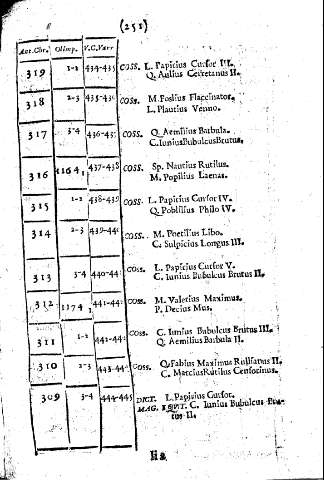 (251)
Ant. Chr. Olimp. V.C. Varr
319 1-2 434-435 COSS. L. Papicius Cursor III.
Q. Aulius Cerretanus II.
318 2-3 435-43 COSS. M. Foslius Flaccinator.
L. Plautius Venno.
317 3-4 436-437 COSS. Q. Aemilius Barbula.
C. Iunius Bubulcus Brutus.
316 1164, 437-438 COSS. Sp. Nautius Rutilus.
M. Popilius Laenas.
315 1-2 438-439 COSS. L. Papicius Cursor IV.
Q. Poblilius Philo IV.
314 2-3 439-440 COSS. M. Poetilius Libo.
C. Sulpicius Longus III.
313 3-4 440-44 COSS. L. Papicius Cursor V.
C. Iunius Bubulcus Brutus II.
312 1174, 441-44 COSS. M. Valerius Maximus.
P. Decius Mus.
311 1-2 442-44 COSS. C. Iunius Bubulcus Brutus III.
Q. Aemilius Barbula II.
310 2-3 443-44 COSS. Q. Fabius Maximus Rullianus II.
C. Marcius Rutilus Censorinus.
309 3-4 444-445 DICT. L. Papicius Cursor.
MAG. EQVIT. C. Iunius Bubulcus Bru-
tus II.
Ii2